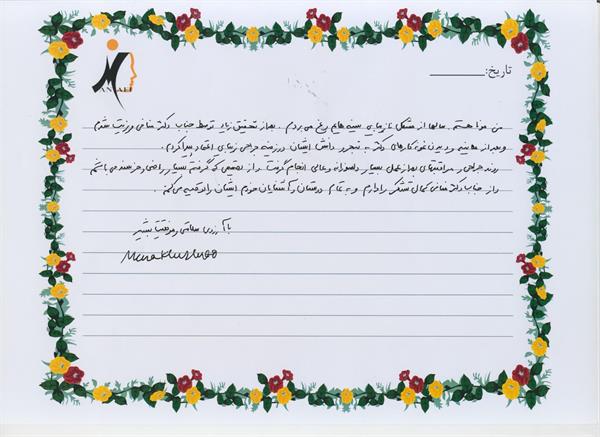 MANAFI
تاریخ:
من مونا هستم. سالها از مشکل نازیبایی سینه هایم رنج می بردم. بعد از تحقیق زیاد توسط جناب دکتر منافی ویزیت شدم
و بعد از معاینه و دیدن نمونه کارهای دکتر به تبحر و دانش ایشان در زمینه جراحی زیبایی اعتماد پیدا کردم.
روند جراحی و مراقبتهای بعد از عمل بسیار دلسوزانه و عالی انجام گرفت و از تصمیمی که گرفتم بسیار راضی و خرسند می باشم
و از جناب دکتر منافی کمال تشکر را دارم و به تمام دوستان و آشنایان خودم ایشان را توصیه می کنم.
با آرزوی سلامتی و موفقیت بیشتر
Mona